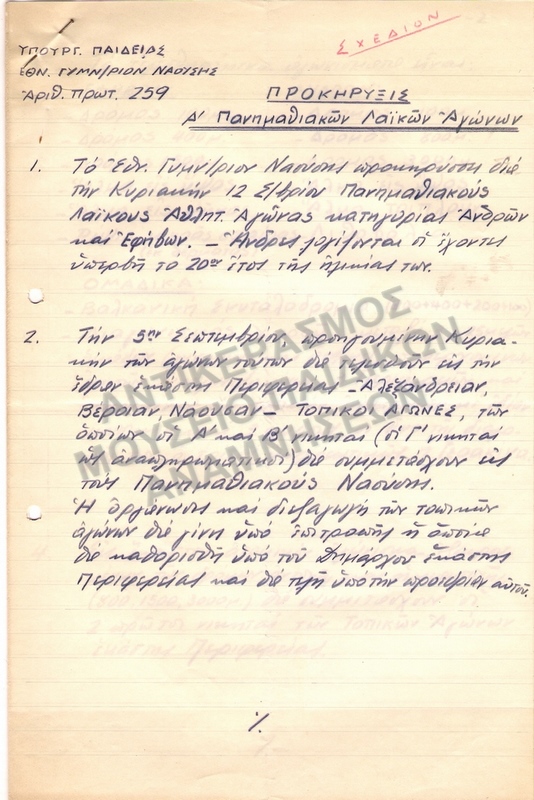 ΣΧΕΔΙΟΝ
ΥΠΟΥΡΓ. ΠΑΙΔΕΙΑΣ
ΕΘΝ. ΓΥΜΝ/ΡΙΟΝ ΝΑΟΥΣΗΣ
Ἀριθ. Πρωτ. 259
ΠΡΟΚΗΡΥΞΙΣ
Α' Πανημαθιακῶν Λαϊκῶν Ἀγώνων
1. Τό Ἐθν. Γυμν/ριον Ναούσης προκηρύσσει διά
τήν Κυριακήν 12 Σ/βρίου Πανημαθιακούς
Λαϊκούς Ἀθλητ. Ἀγῶνας κατηγορίας Ἀνδρῶν
καί Ἐφήβων. – Ἄνδρες λογίζονται οἱ ἔχοντες
ὑπερβῆ τό 20ον ἔτος τῆς ἡλικίας των.
2. Τήν 5ην Σεπτεμβρίου, προηγουμένην Κυρια-
κήν τῶν ἀγώνων τούτων θά τελεσθοῦν εἰς τήν
ἕδραν ἑκάστης Περιφερείας – Ἀλεξάνδρειαν,
Βέροιαν, Νάουσαν – ΤΟΠΙΚΟΙ ΑΓΩΝΕΣ, τῶν
ὁποίων οἱ Α' καί Β' νικηταί (οἱ Γ' νικηταί
ὡς ἀναπληρωματικοί) θά συμμετάσχουν εἰς
τούς Πανημαθιακούς Ναούσης.
Ἡ ὀργάνωσις καί διεξαγωγή τῶν τοπικῶν
ἀγώνων θά γίνῃ ὑπό ἐπιτροπῆς ἡ ὁποία
θά καθορισθῇ ὑπό τοῦ Δημάρχου ἑκάστης
Περιφερείας καί θά τελῇ ὑπό τήν προεδρίαν αὐτοῦ.
ΑΝΤΙΚΕΡΑΣΜΟΣ
ΜΟΥΣΕΙΟ ΠΑΙΔΙΚΩΝ
ΑΝΑΜΝΗΣΕΩΝ
·/.